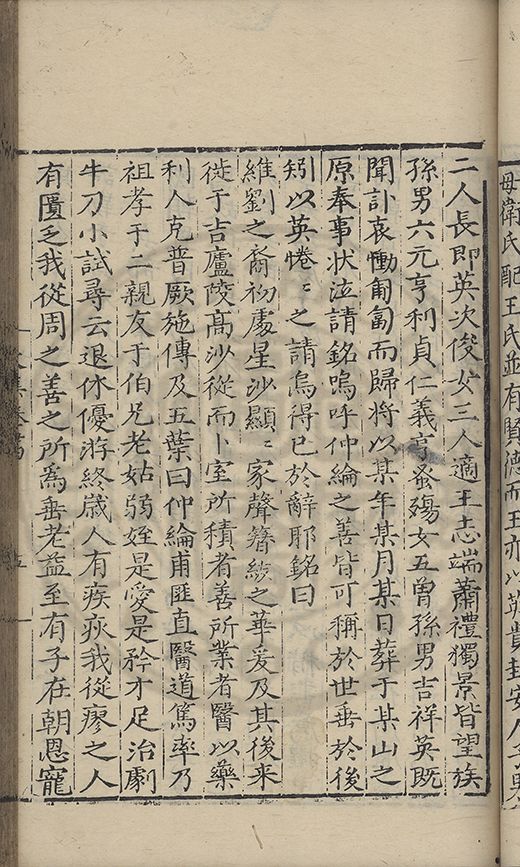 母衛氏配王氏並有賢德而王亦以英貴封安人子男
二人長即英次俊女三人適王志端蕭禮獨景皆望族
孫男六元亨利貞仁義亨蚤殤女五曾孫男吉祥英既
聞訃哀慟匍匐而歸將以某年某月某日葬于某山之
原奉事狀泣請銘嗚呼仲綸之善皆可稱於世垂於後
矧以英惓〻之請烏得已於辭耶銘曰
維劉之裔初處星沙顯〻家聲簪紱之華爰及其後來
徙于吉廬陵高沙從而卜室所積者善所業者醫以藥
利人克普厥施傳及五葉曰仲綸甫匪直醫道篤率乃
祖孝于二親友于伯兄老姑弱姪是愛是矜才足治劇
牛刀小試尋云退休優游終歲人有疾疢我從瘳之人
有匱乏我從周之善之所為垂老益至有子在朝恩寵